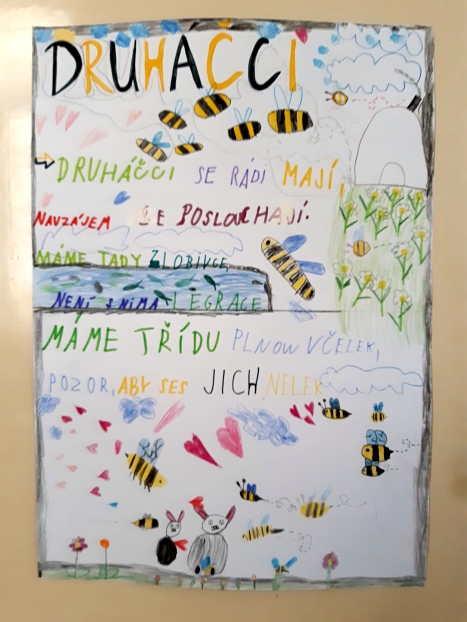 DRUHÁCCI
DRUHÁČCI SE RÁDI MAJÍ,
NAVZÁJEM SE POSLOUCHAJÍ.
MÁME TADY ZLOBIVCE,
NENÍ S NIMA LEGRACE
MÁME TŘÍDU PLNOU VČELEK,
POZOR, ABY SES JICH NELEK